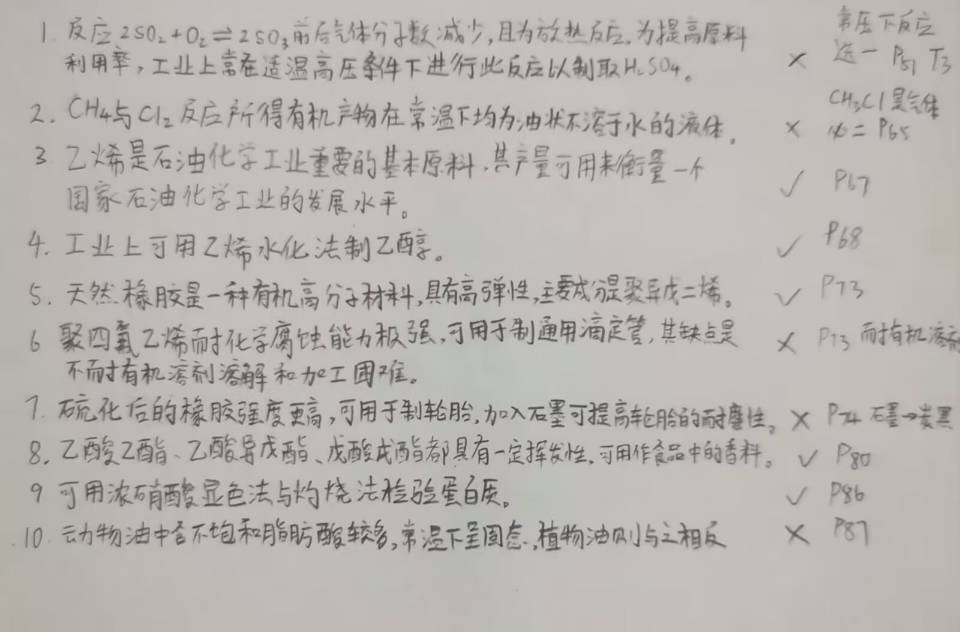 1. 反应 2SO₂+O₂⇌2SO₃ 前后气体分子数减少，且为放热反应，为提高原料 常压下反应
利用率，工业上常在适温高压条件下进行此反应以制取H₂SO₄。 × 选一 P51 T3
2. CH₄与Cl₂反应所得有机产物在常温下均为油状不溶于水的液体。 × CH₃Cl是气体
必二 P65
3 乙烯是石油化学工业重要的基本原料，其产量可用来衡量一个
国家石油化学工业的发展水平。 ✓ P67
4. 工业上可用乙烯水化法制乙醇。 ✓ P68
5. 天然橡胶是一种有机高分子材料，具有高弹性，主要成分是聚异戊二烯。 ✓ P73
6 聚四氟乙烯耐化学腐蚀能力极强，可用于制通用滴定管，其缺点是 × P73 耐有机溶剂
不耐有机溶剂溶解和加工困难。
7. 硫化后的橡胶强度更高，可用于制轮胎，加入石墨可提高轮胎的耐磨性。 × P74 石墨→炭黑
8. 乙酸乙酯、乙酸异戊酯、戊酸戊酯都具有一定挥发性，可用作食品中的香料。 ✓ P80
9 可用浓硝酸显色法与灼烧法检验蛋白质。 ✓ P86
10. 动物油中含不饱和脂肪酸较多，常温下呈固态，植物油则与之相反 × P87